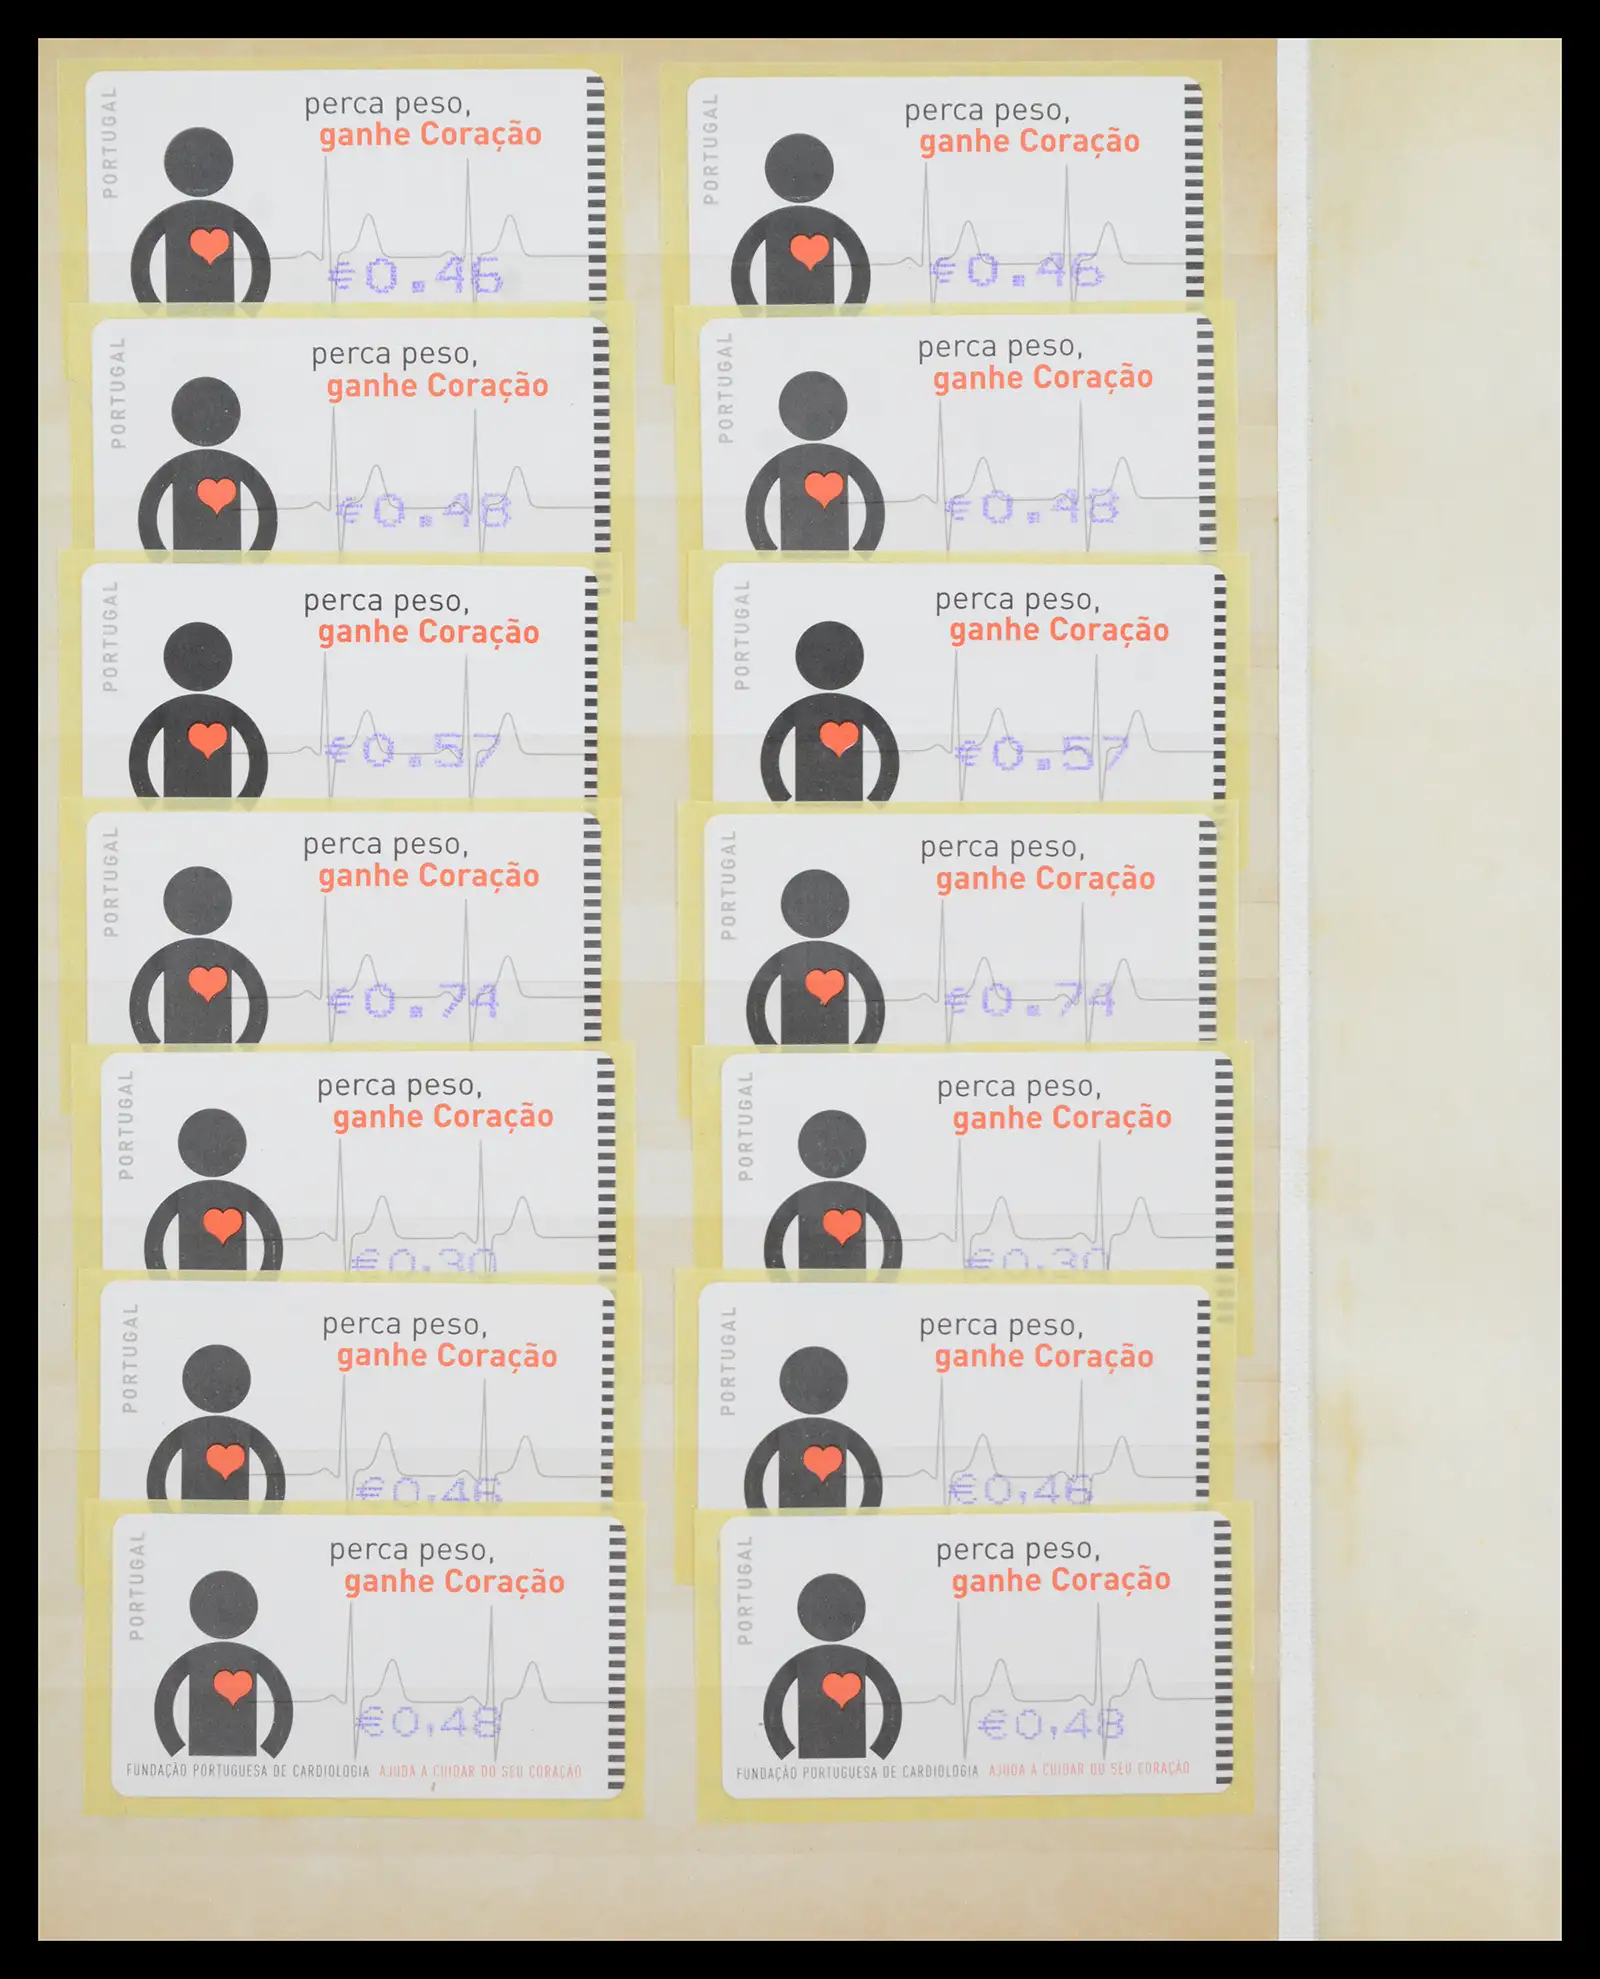 PORTUGAL
perca peso,
ganhe Coração
€0.46
PORTUGAL
perca peso,
ganhe Coração
€0.46
PORTUGAL
perca peso,
ganhe Coração
€0.48
PORTUGAL
perca peso,
ganhe Coração
€0.48
PORTUGAL
perca peso,
ganhe Coração
€0.57
PORTUGAL
perca peso,
ganhe Coração
€0.57
PORTUGAL
perca peso,
ganhe Coração
€0.74
PORTUGAL
perca peso,
ganhe Coração
€0.74
PORTUGAL
perca peso,
ganhe Coração
€0.30
PORTUGAL
perca peso,
ganhe Coração
€0.30
PORTUGAL
perca peso,
ganhe Coração
€0,46
PORTUGAL
perca peso,
ganhe Coração
€0,46
PORTUGAL
perca peso,
ganhe Coração
€0,48
FUNDAÇÃO PORTUGUESA DE CARDIOLOGIA AJUDA A CUIDAR DO SEU CORAÇÃO
PORTUGAL
perca peso,
ganhe Coração
€0,48
FUNDAÇÃO PORTUGUESA DE CARDIOLOGIA AJUDA A CUIDAR DO SEU CORAÇÃO